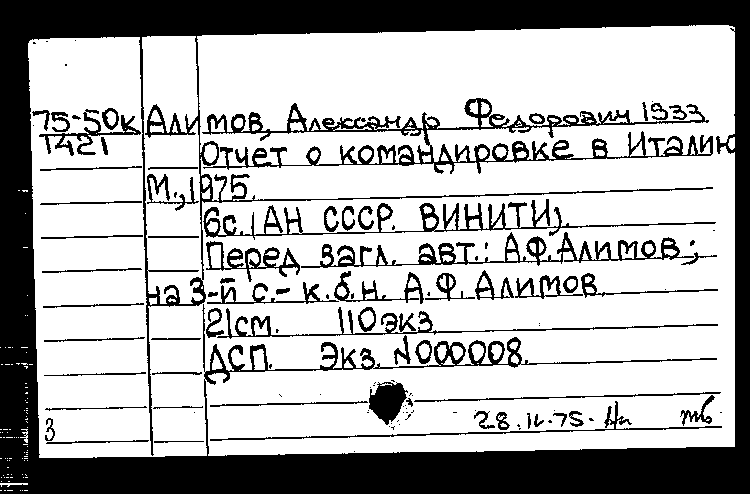 75-50к Алимов, Александр Федорович 1933
1421 Отчет о командировке в Италию
М., 1975.
6с. (АН СССР. ВИНИТИ).
Перед загл. авт.: А.Ф.Алимов;
на 3-й с.- к.б.н. А.Ф.Алимов.
21см. 110экз.
ДСП. Экз. N000008.
3 28.IV.75.